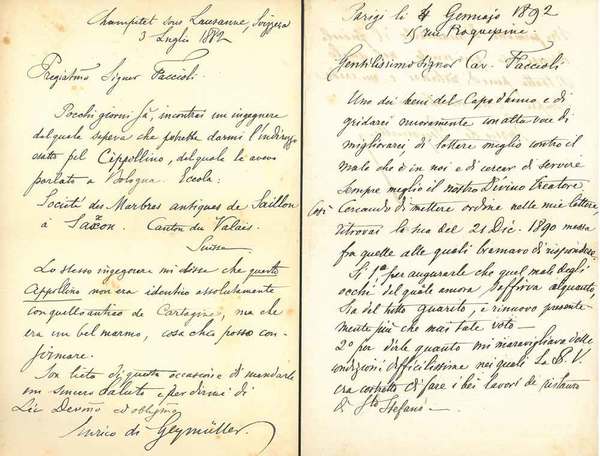 Champitet sous Lausanne, Svizzera
3 Luglio 1882
Pregiatmo Signor Faccioli.
Pochi giorni fà, incontrai un ingegnere
del quale sapeva che potrebbe darmi l'indirizzo
esatto pel Cippollino, del quale le aveva
parlato a Bologna. Eccola:
Société des Marbres antiques de Saillon
à Saxon. Canton du Valais.
Suisse
Lo stesso ingegnere mi disse che questo
Cippollino non era identico assolutamente
con quello antico de Cartagine, ma che
era un bel marmo, cosa che posso con-
firmare.
Son lieto di questa occasione di mandarle
un sincero saluto e per dirmi di
Lei Devmo ed obligmo
Enrico di Geymüller.
Parigi li 4 Gennajo 1892
15 rue Roquépine
Gentilissimo Signor Cav. Faccioli
Uno dei beni del Capo d'anno e di
gridarci nuovamente con alta voce di
migliorarci, di lottare meglio contro il
male che è in noi e di cercar di servire
sempre meglio il nostro Divino Creatore.
Così Cercando di mettere ordine nelle mie lettere,
ritrovai la sua del 21 Dic. 1890 messa
fra quelle alle quali bramavo di rispondere.
Si 1° per augurarle che quel male degli
occhi del quale ancora soffriva alquanto,
sia del tutto guarito, e rinnovo presente-
mente più che mai tale voto —
2° per dirle quanto mi maravigliavo delle
condizioni difficilissime nei quali La S. V.
era costretto di fare i bei lavori de ristauro
di Sto Stefano —